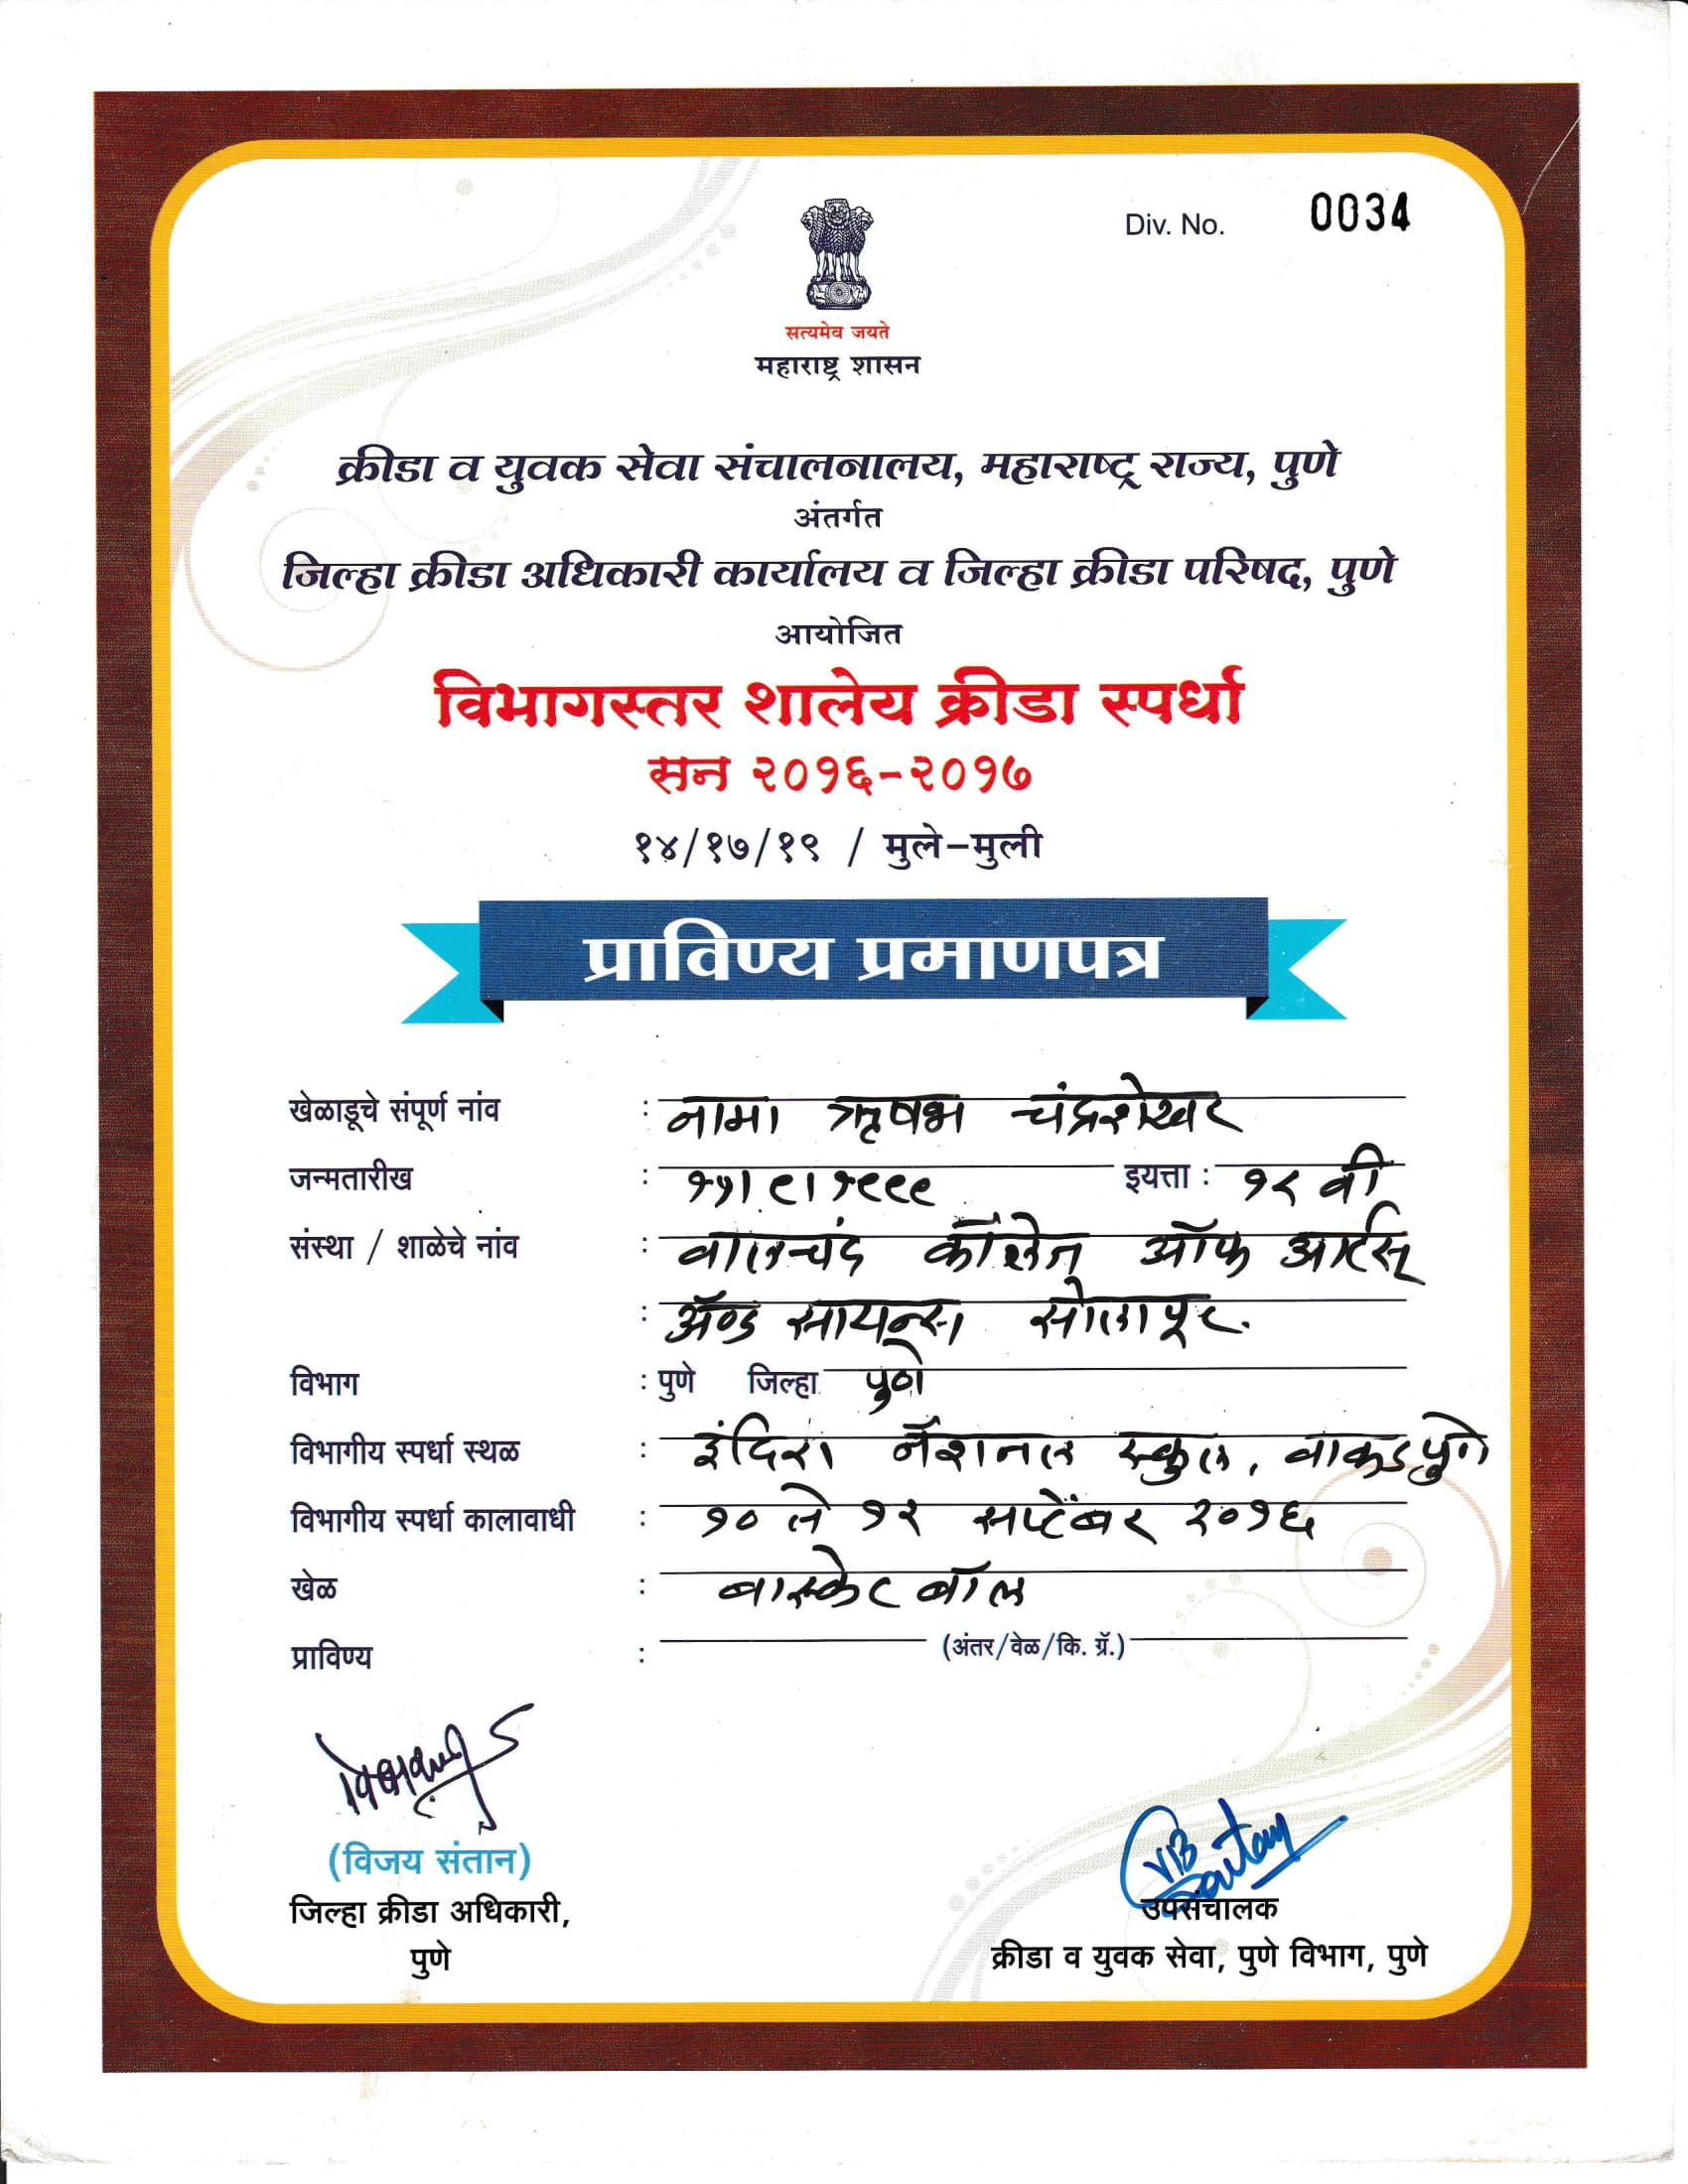 Div. No. 0034
सत्यमेव जयते
महाराष्ट्र शासन
क्रीडा व युवक सेवा संचालनालय, महाराष्ट्र राज्य, पुणे
अंतर्गत
जिल्हा क्रीडा अधिकारी कार्यालय व जिल्हा क्रीडा परिषद, पुणे
आयोजित
विभागस्तर शालेय क्रीडा स्पर्धा
सन २०१६-२०१७
१४/१७/१९ / मुले-मुली
प्राविण्य प्रमाणपत्र
खेळाडूचे संपूर्ण नांव : नामा ऋषभ चंद्रशेखर
जन्मतारीख : १५।९।१९९९ इयत्ता : १२ वी
संस्था / शाळेचे नांव : वालचंद कॉलेज ऑफ आर्टस्
: ॲण्ड सायन्स सोलापूर.
विभाग : पुणे जिल्हा पुणे
विभागीय स्पर्धा स्थळ : इंदिरा नॅशनल स्कुल, वाकड पुणे
विभागीय स्पर्धा कालावाधी : १० ते १२ सप्टेंबर २०१६
खेळ : बास्केट बॉल
प्राविण्य : (अंतर/वेळ/कि. ग्रॅ.)
(विजय संतान)
जिल्हा क्रीडा अधिकारी,
पुणे
उपसंचालक
क्रीडा व युवक सेवा, पुणे विभाग, पुणे